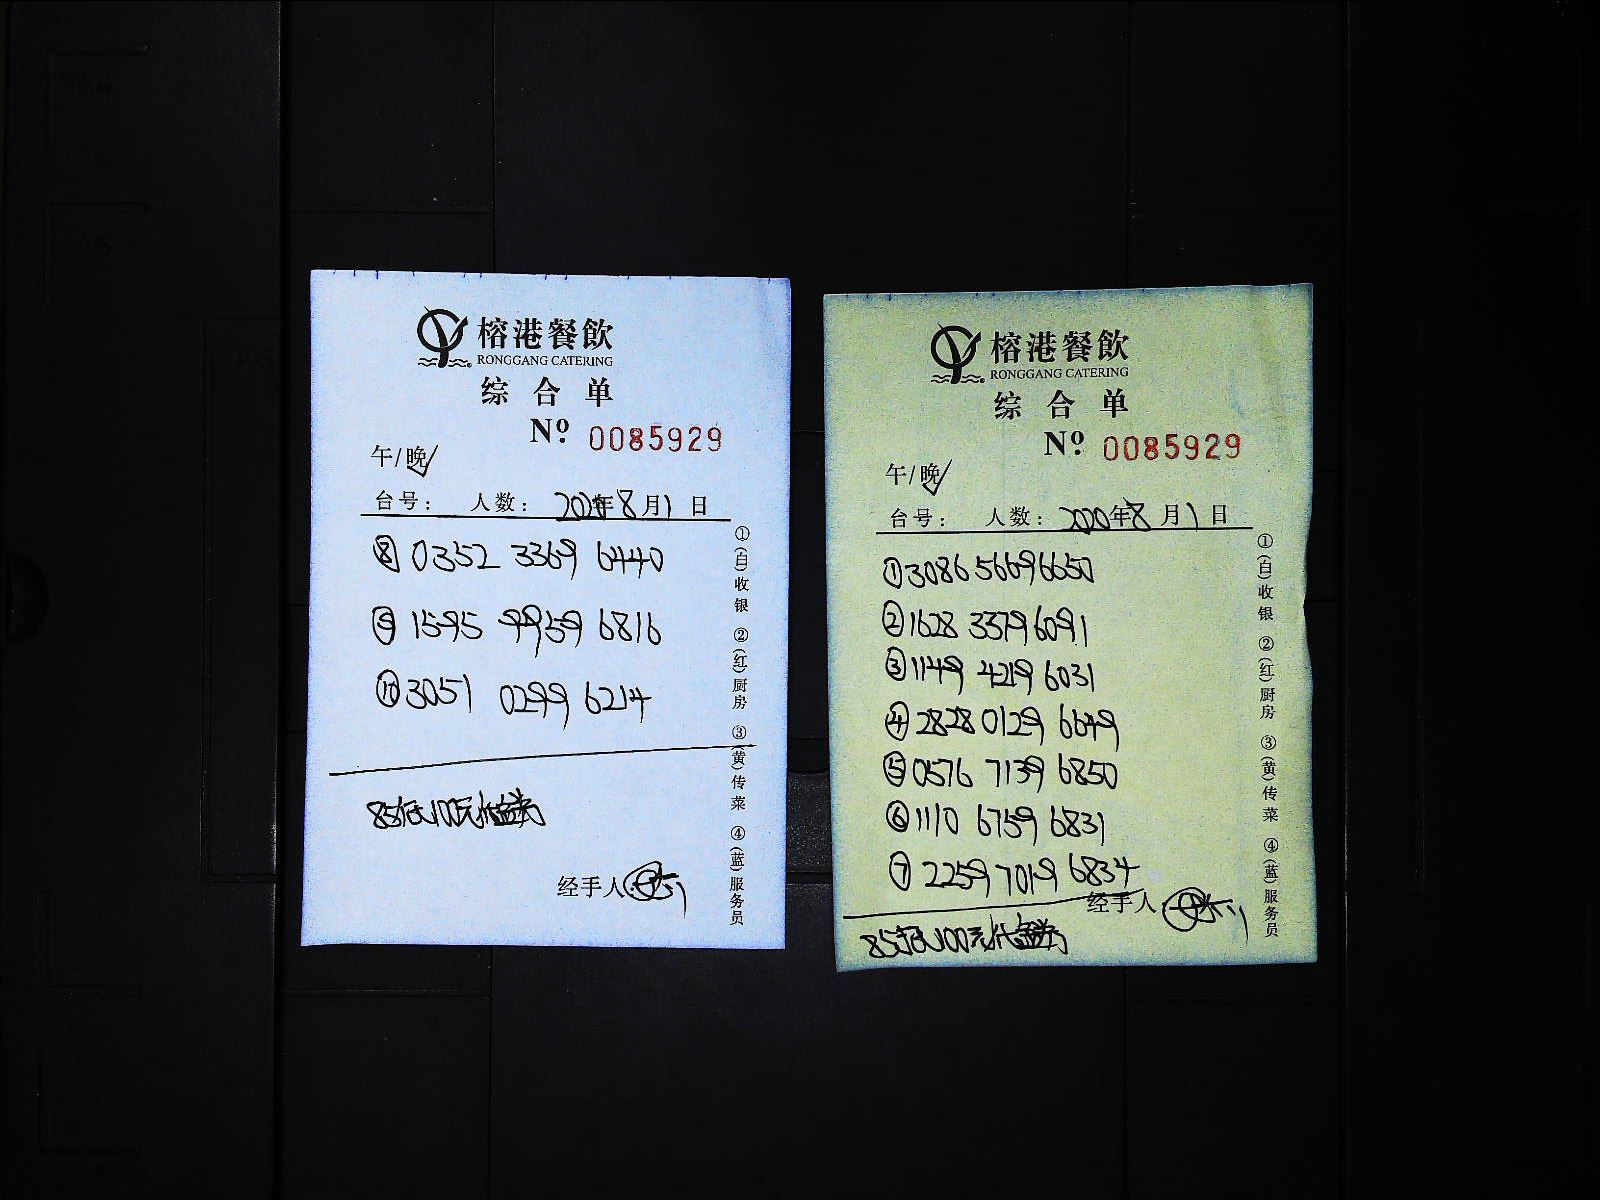 榕港餐飲
RONGGANG CATERING
综合单
Nº 0085929
午/晚
台号： 人数： 2020年8月1日
⑧ 0352 3369 6440
⑨ 1595 9959 6816
⑩ 3051 0299 6214
85抵100元代金券
经手人
①(白)收银 ②(红)厨房 ③(黄)传菜 ④(蓝)服务员
榕港餐飲
RONGGANG CATERING
综合单
Nº 0085929
午/晚
台号： 人数： 2020年8月1日
① 3086 5669 6650
② 1628 3379 6091
③ 1149 4219 6031
④ 2828 0129 6649
⑤ 0576 7139 6850
⑥ 1110 6759 6831
⑦ 2259 7019 6834
经手人
85抵100元代金券
①(白)收银 ②(红)厨房 ③(黄)传菜 ④(蓝)服务员